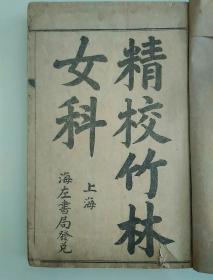 精校竹林
女科
上海
海左書局發兌